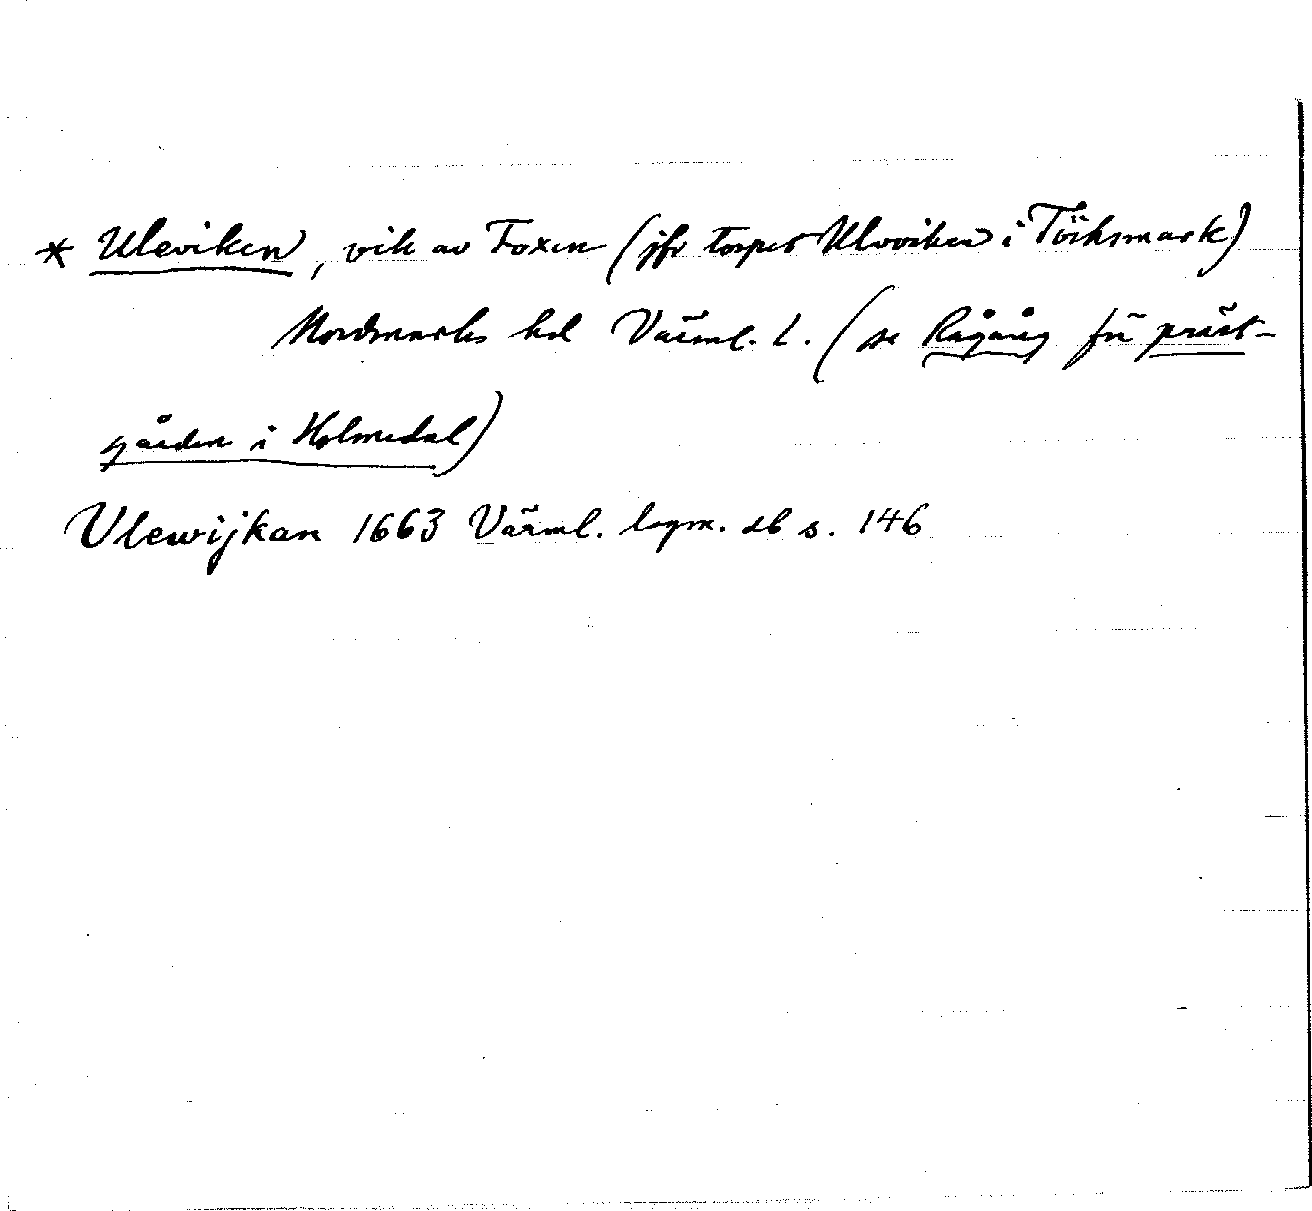 * Uleviken, vik av Foxen (jfr torpet Ulvviken i Töcksmark)
Nordmarks hd Värml. l. (se Rågång för präst-
gården i Holmedal)
Ulewijkan 1663 Värml. lagm. db s. 146